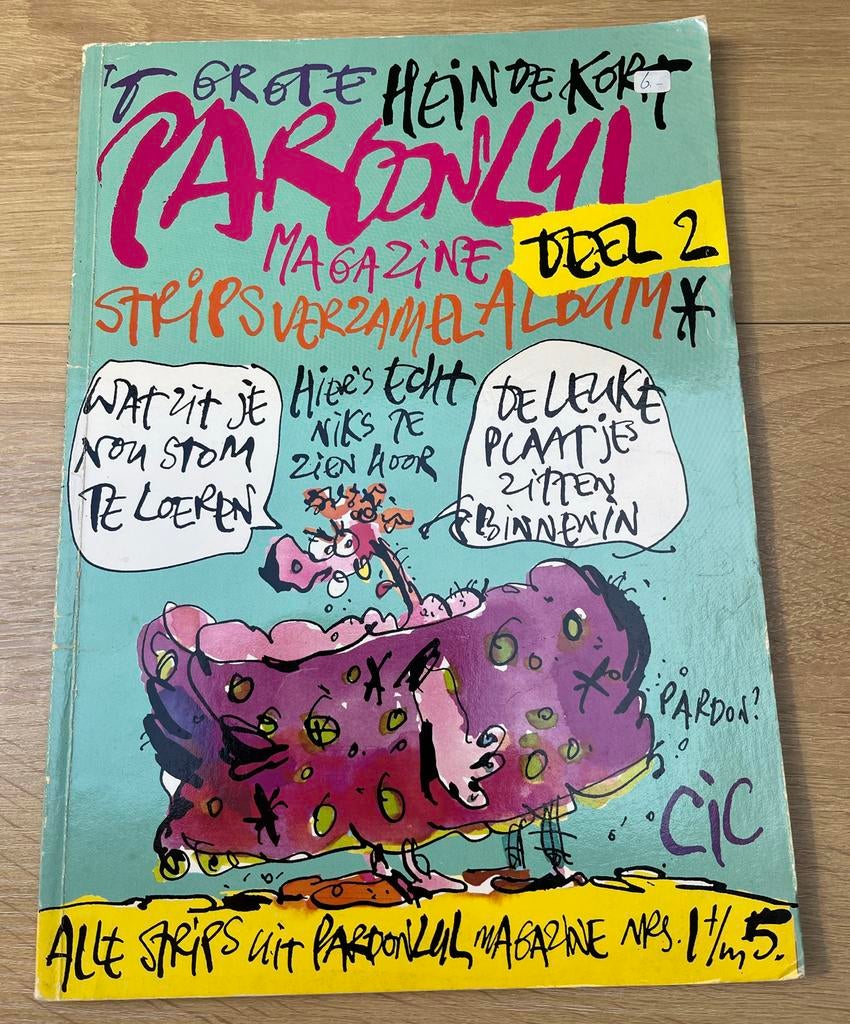 'T GROTE HEIN DE KORT
6.-
PARDONLUL
MAGAZINE
DEEL 2
STRIPSVERZAMELALBUM*
WAT ZIT JE
NOU STOM
TE LOEREN
HIER'S ECHT
NIKS TE
ZIEN HOOR
DE LEUKE
PLAATJES
ZITTEN
BINNENIN
PARDON?
CiC
ALLE STRIPS UIT PARDONLUL MAGAZINE NRS. 1 t/m 5.